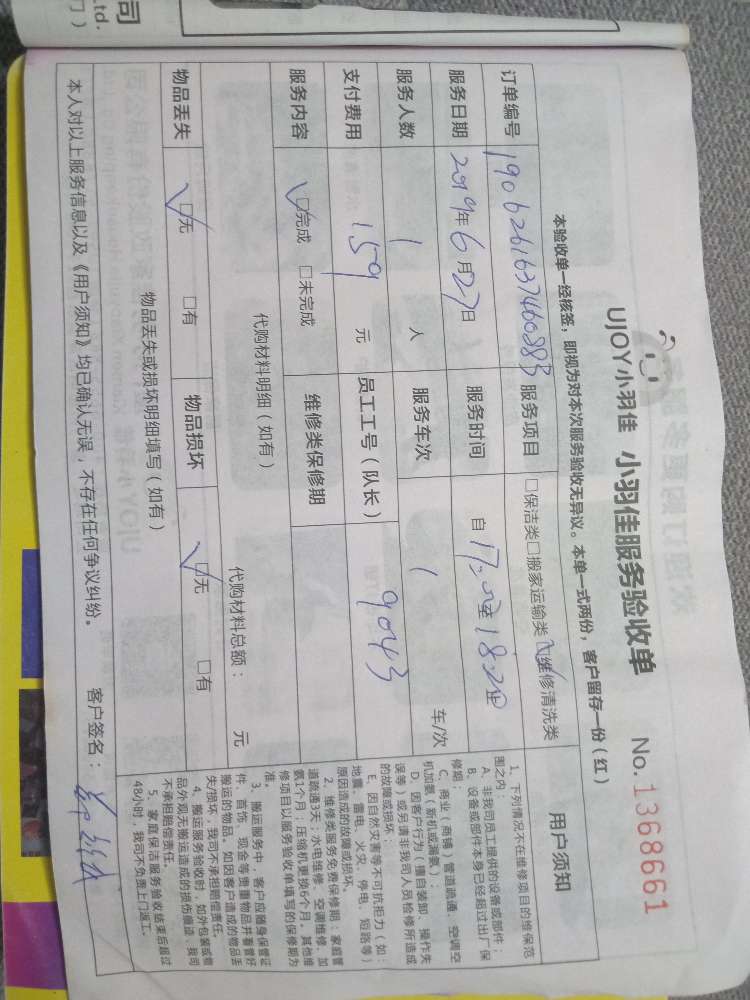 司
td.
UJOY小羽佳 小羽佳服务验收单 No.1368661
本验收单一经核签，即视为对本次服务验收无异议。本单一式两份，客户留存一份（红）
订单编号 1906261637460883 服务项目 □保洁类□搬家运输类☑维修清洗类
服务日期 2019年6月27日 服务时间 自17:05至18:20止
服务人数 1 人 服务车次 1 车/次
支付费用 159 元 员工工号（队长） 9043
服务内容 ☑完成 □未完成 维修类保修期
代购材料明细（如有） 代购材料总额： 元
物品丢失 ☑无 □有 物品损坏 ☑无 □有
物品丢失或损坏明细填写（如有）
本人对以上服务信息以及《用户须知》均已确认无误，不存在任何争议纠纷。 客户签名：
用户须知
1、下列情况不在维修项目的维保范
围之内：
A、非我司员工提供的设备或部件；
B、设备或部件本身已经超过出厂保
修期；
C、商业（商铺）管道疏通、空调空
机加氨（新机或漏氨）；
D、因客户行为（擅自装卸、操作失
误等）或另请非我司人员检修所造成
的故障或损坏；
E、因自然灾害等不可抗拒力（如：
地震、雷电、火灾、停电、短路等）
原因造成的故障或损坏。
2、维修类服务免费保修期：家庭管
道疏通3天；水电维修、空调维修、加
氨1个月；压缩机更换6个月。其他维
修项目以服务验收单填写的保修期为
准。
3、搬运服务中，客户应随身保管证
件、首饰、现金等贵重物品并看管好
搬运的物品。如因客户造成的物品丢
失/损坏，我司不承担赔偿责任。
4、搬运服务验收时，如外包装或赠
品外观无搬运造成的损伤痕迹，我司
不承担赔偿责任。
5、家庭保洁服务验收结束后超过
48小时，我司不负责上门返工。